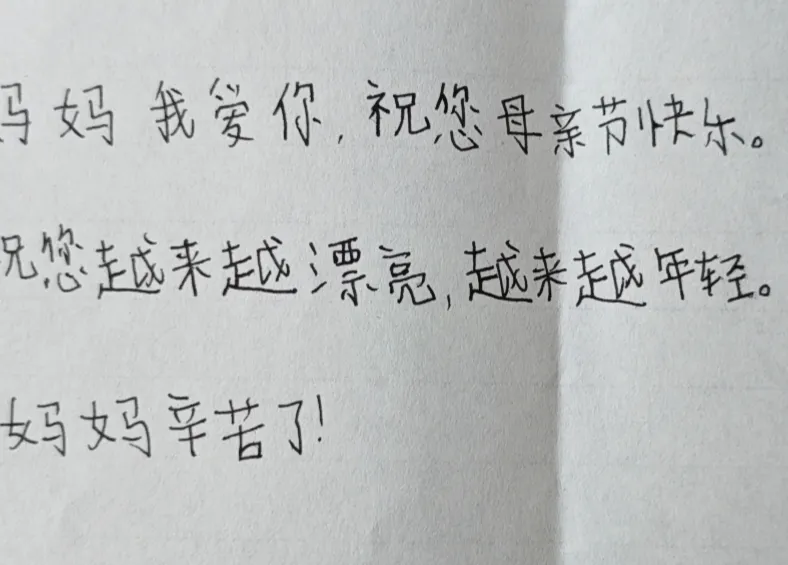 妈妈 我爱你,祝您母亲节快乐。
祝您越来越漂亮,越来越年轻。
妈妈辛苦了!